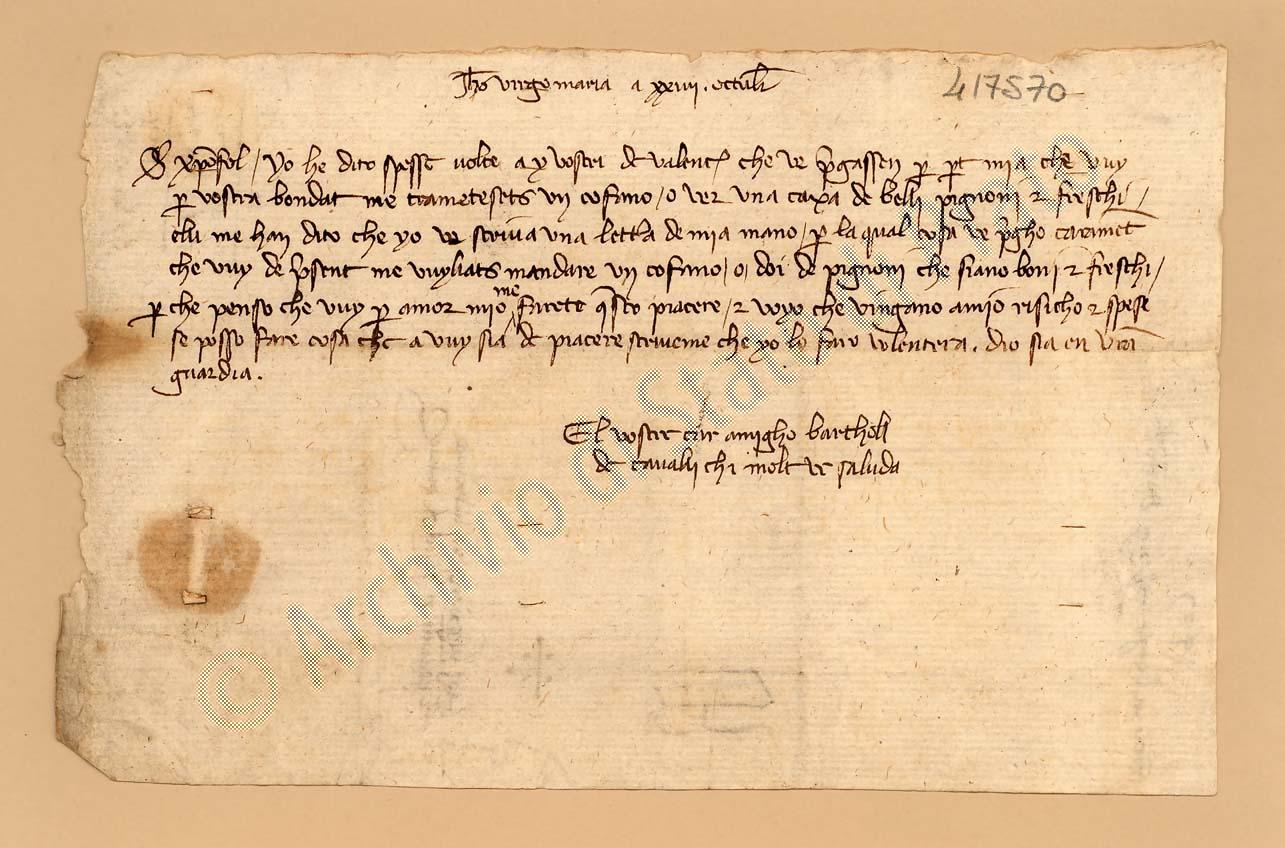 Jhs virgo maria a xxiiii . octubri
417570
S xpofol / yo he dito spesse volte a y vostri de valenc che ve pgassen p pt mia che vuy
p vostra bondat me trametesets un cofano / o ver una caxa de belli pignoni & freschi /
elli me han dito che yo ve scrivia una lettra de mia mano / p la qual cosa ve pgho caramet
che vuy de psent me vuyliats mandare un cofano / o / doi de pignoni che siano boni & freschi /
p che penso che vuy p amor mio me farete qsto piacere / & voyo che vingano a mio risicho & spese
se posso fare cosa che a vuy sia de piacere scriveme che yo lo faro volentera . dio sia en vra
guardia .
El vostre car amigho bartholl
de cavalli chi molt ve saluda
© Archivio di Stato